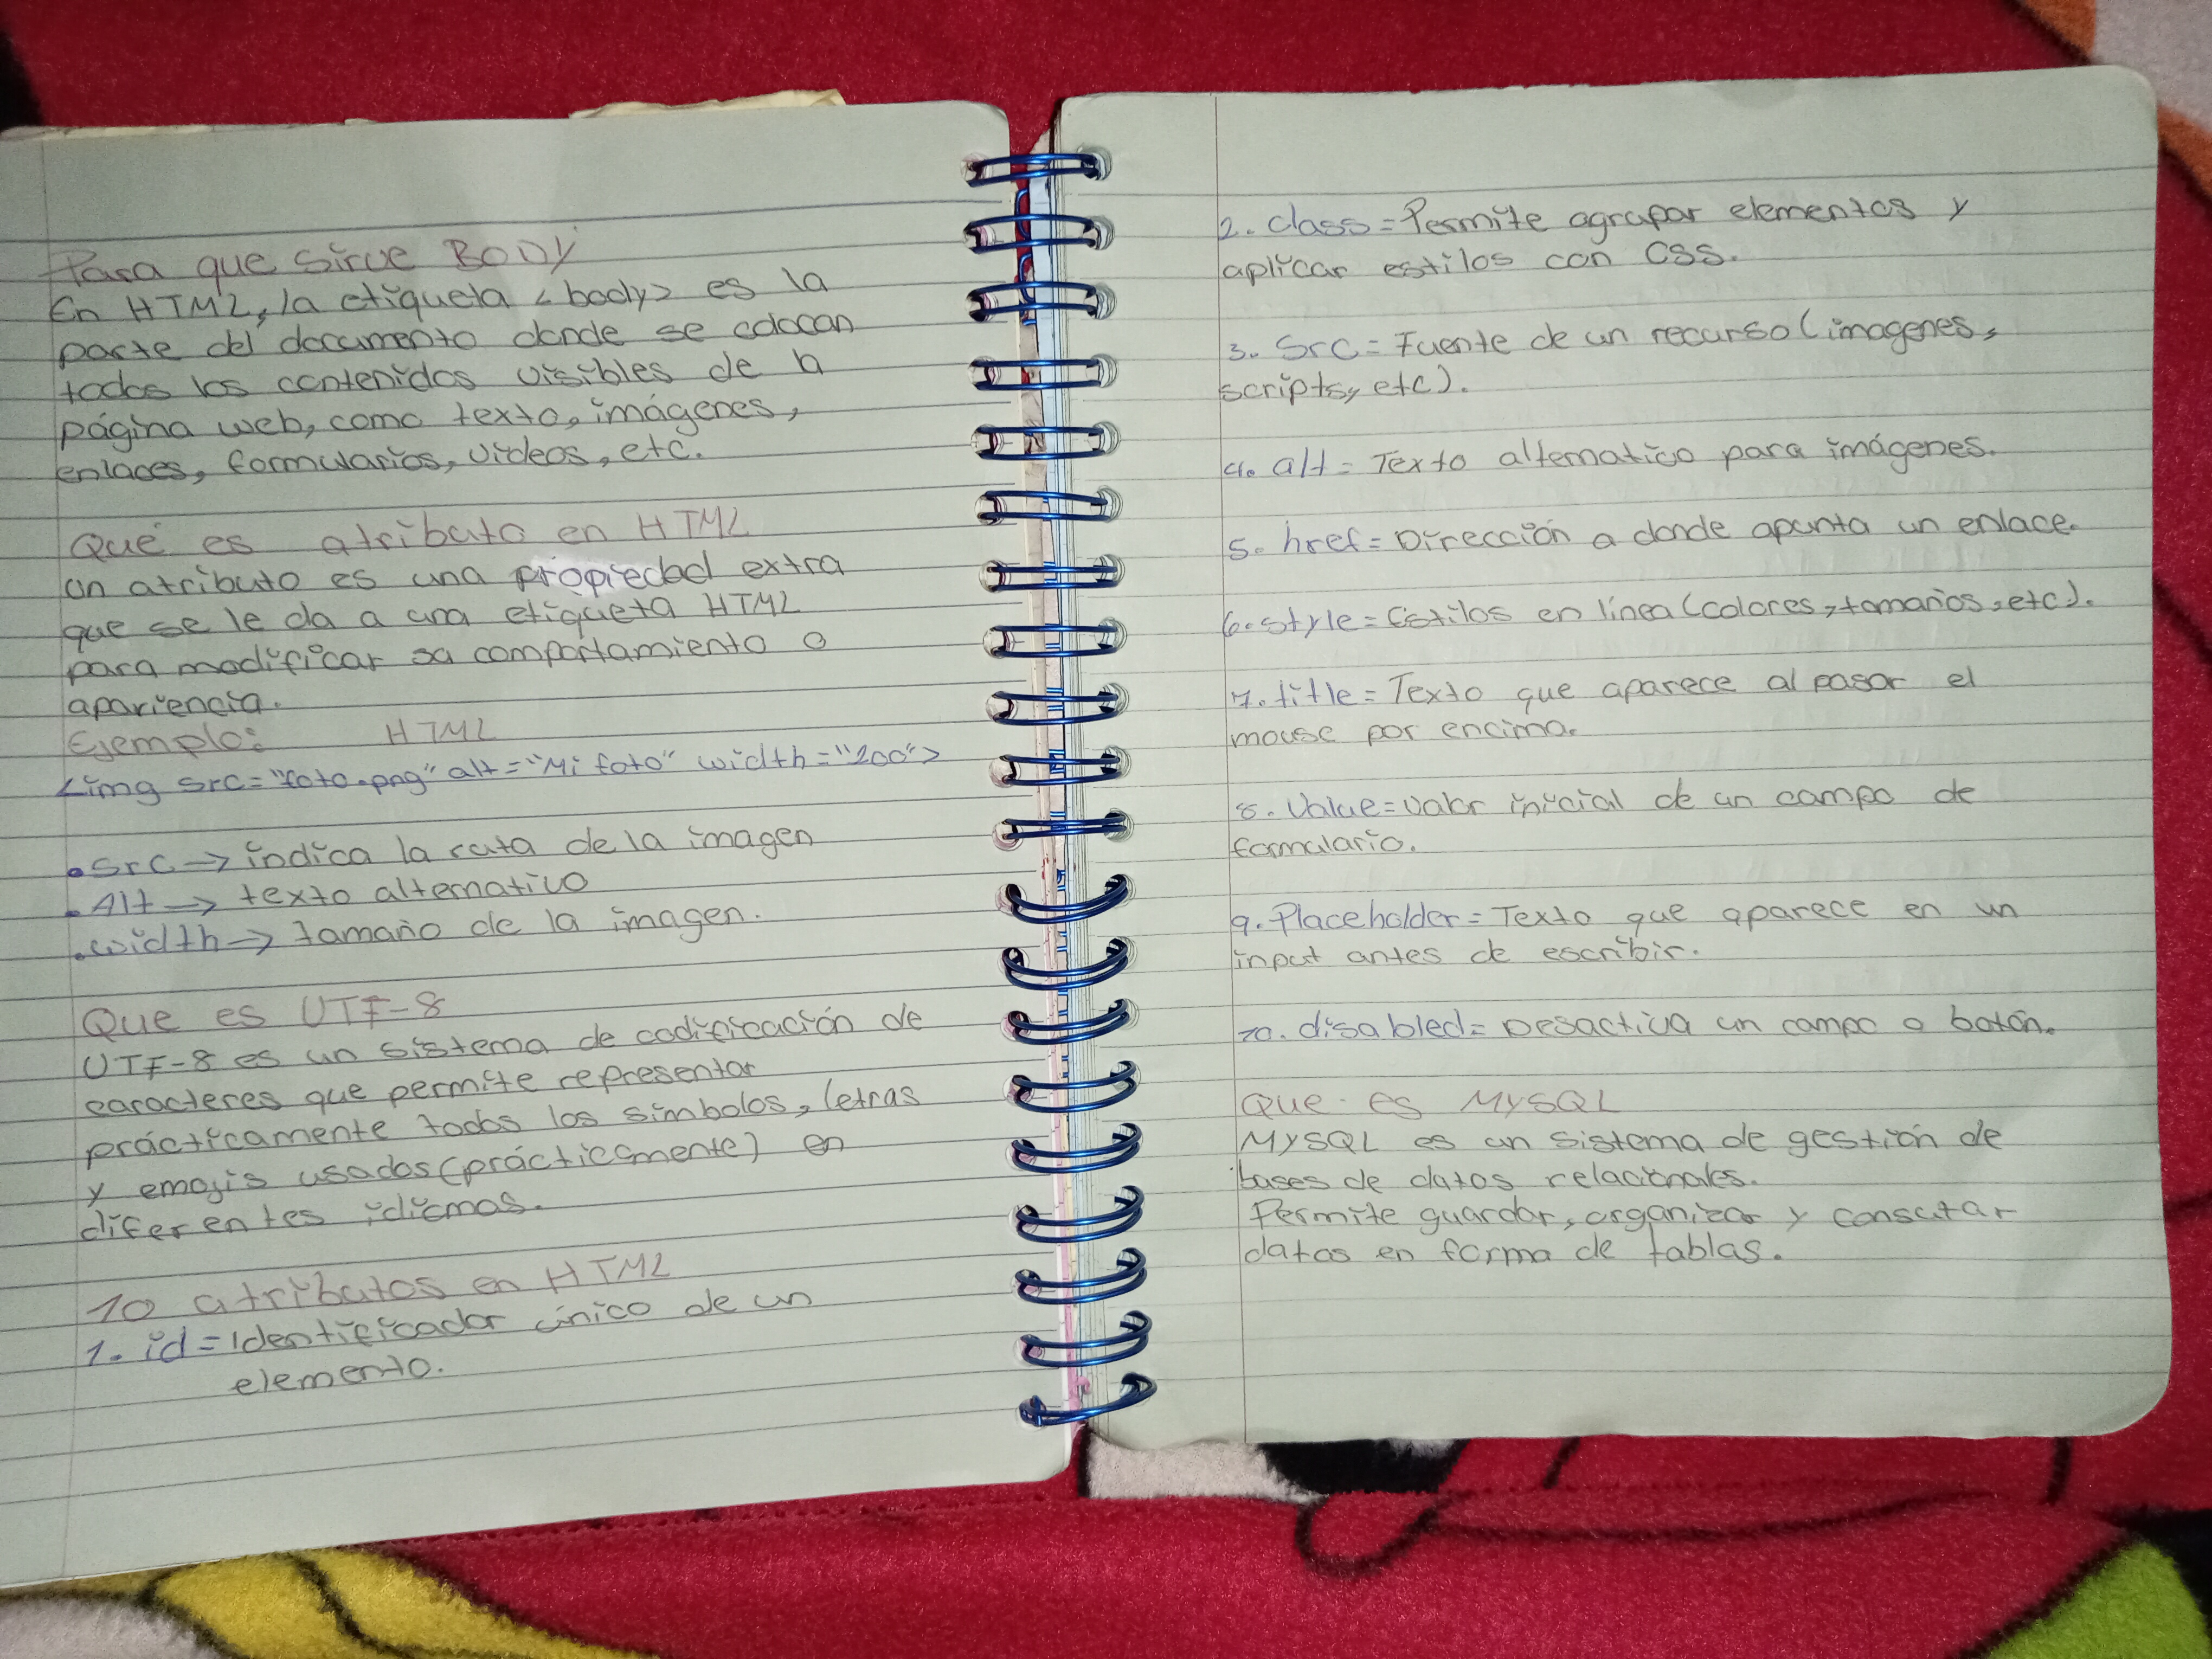 Para que sirve BODY
En HTML, la etiqueta <body> es la
parte del documento donde se colocan
todos los contenidos visibles de la
página web, como texto, imágenes,
enlaces, formularios, videos, etc.
Que es atributo en HTML
un atributo es una propiedad extra
que se le da a una etiqueta HTML
para modificar su comportamiento o
apariencia.
Ejemplo: HTML
<img src="foto.png" alt="Mi foto" width="200">
• Src → indica la ruta de la imagen
• Alt → texto alternativo
• width → tamaño de la imagen.
Que es UTF-8
UTF-8 es un sistema de codificación de
caracteres que permite representar
prácticamente todos los símbolos, letras
y emojis usados (prácticamente) en
diferentes idiomas.
10 atributos en HTML
1. id = Identificador único de un
elemento.
2. class = Permite agrupar elementos y
aplicar estilos con CSS.
3. Src = Fuente de un recurso (imagenes,
scripts, etc).
4. alt = Texto alternativo para imágenes.
5. href = Dirección a donde apunta un enlace.
6. style = Estilos en línea (colores, tamaños, etc).
7. title = Texto que aparece al pasar el
mouse por encima.
8. Value = valor inicial de un campo de
formulario.
9. Placeholder = Texto que aparece en un
input antes de escribir.
10. disabled = Desactiva un campo o botón.
Que es MySQL
MySQL es un sistema de gestión de
bases de datos relacionales.
Permite guardar, organizar y consutar
datos en forma de tablas.